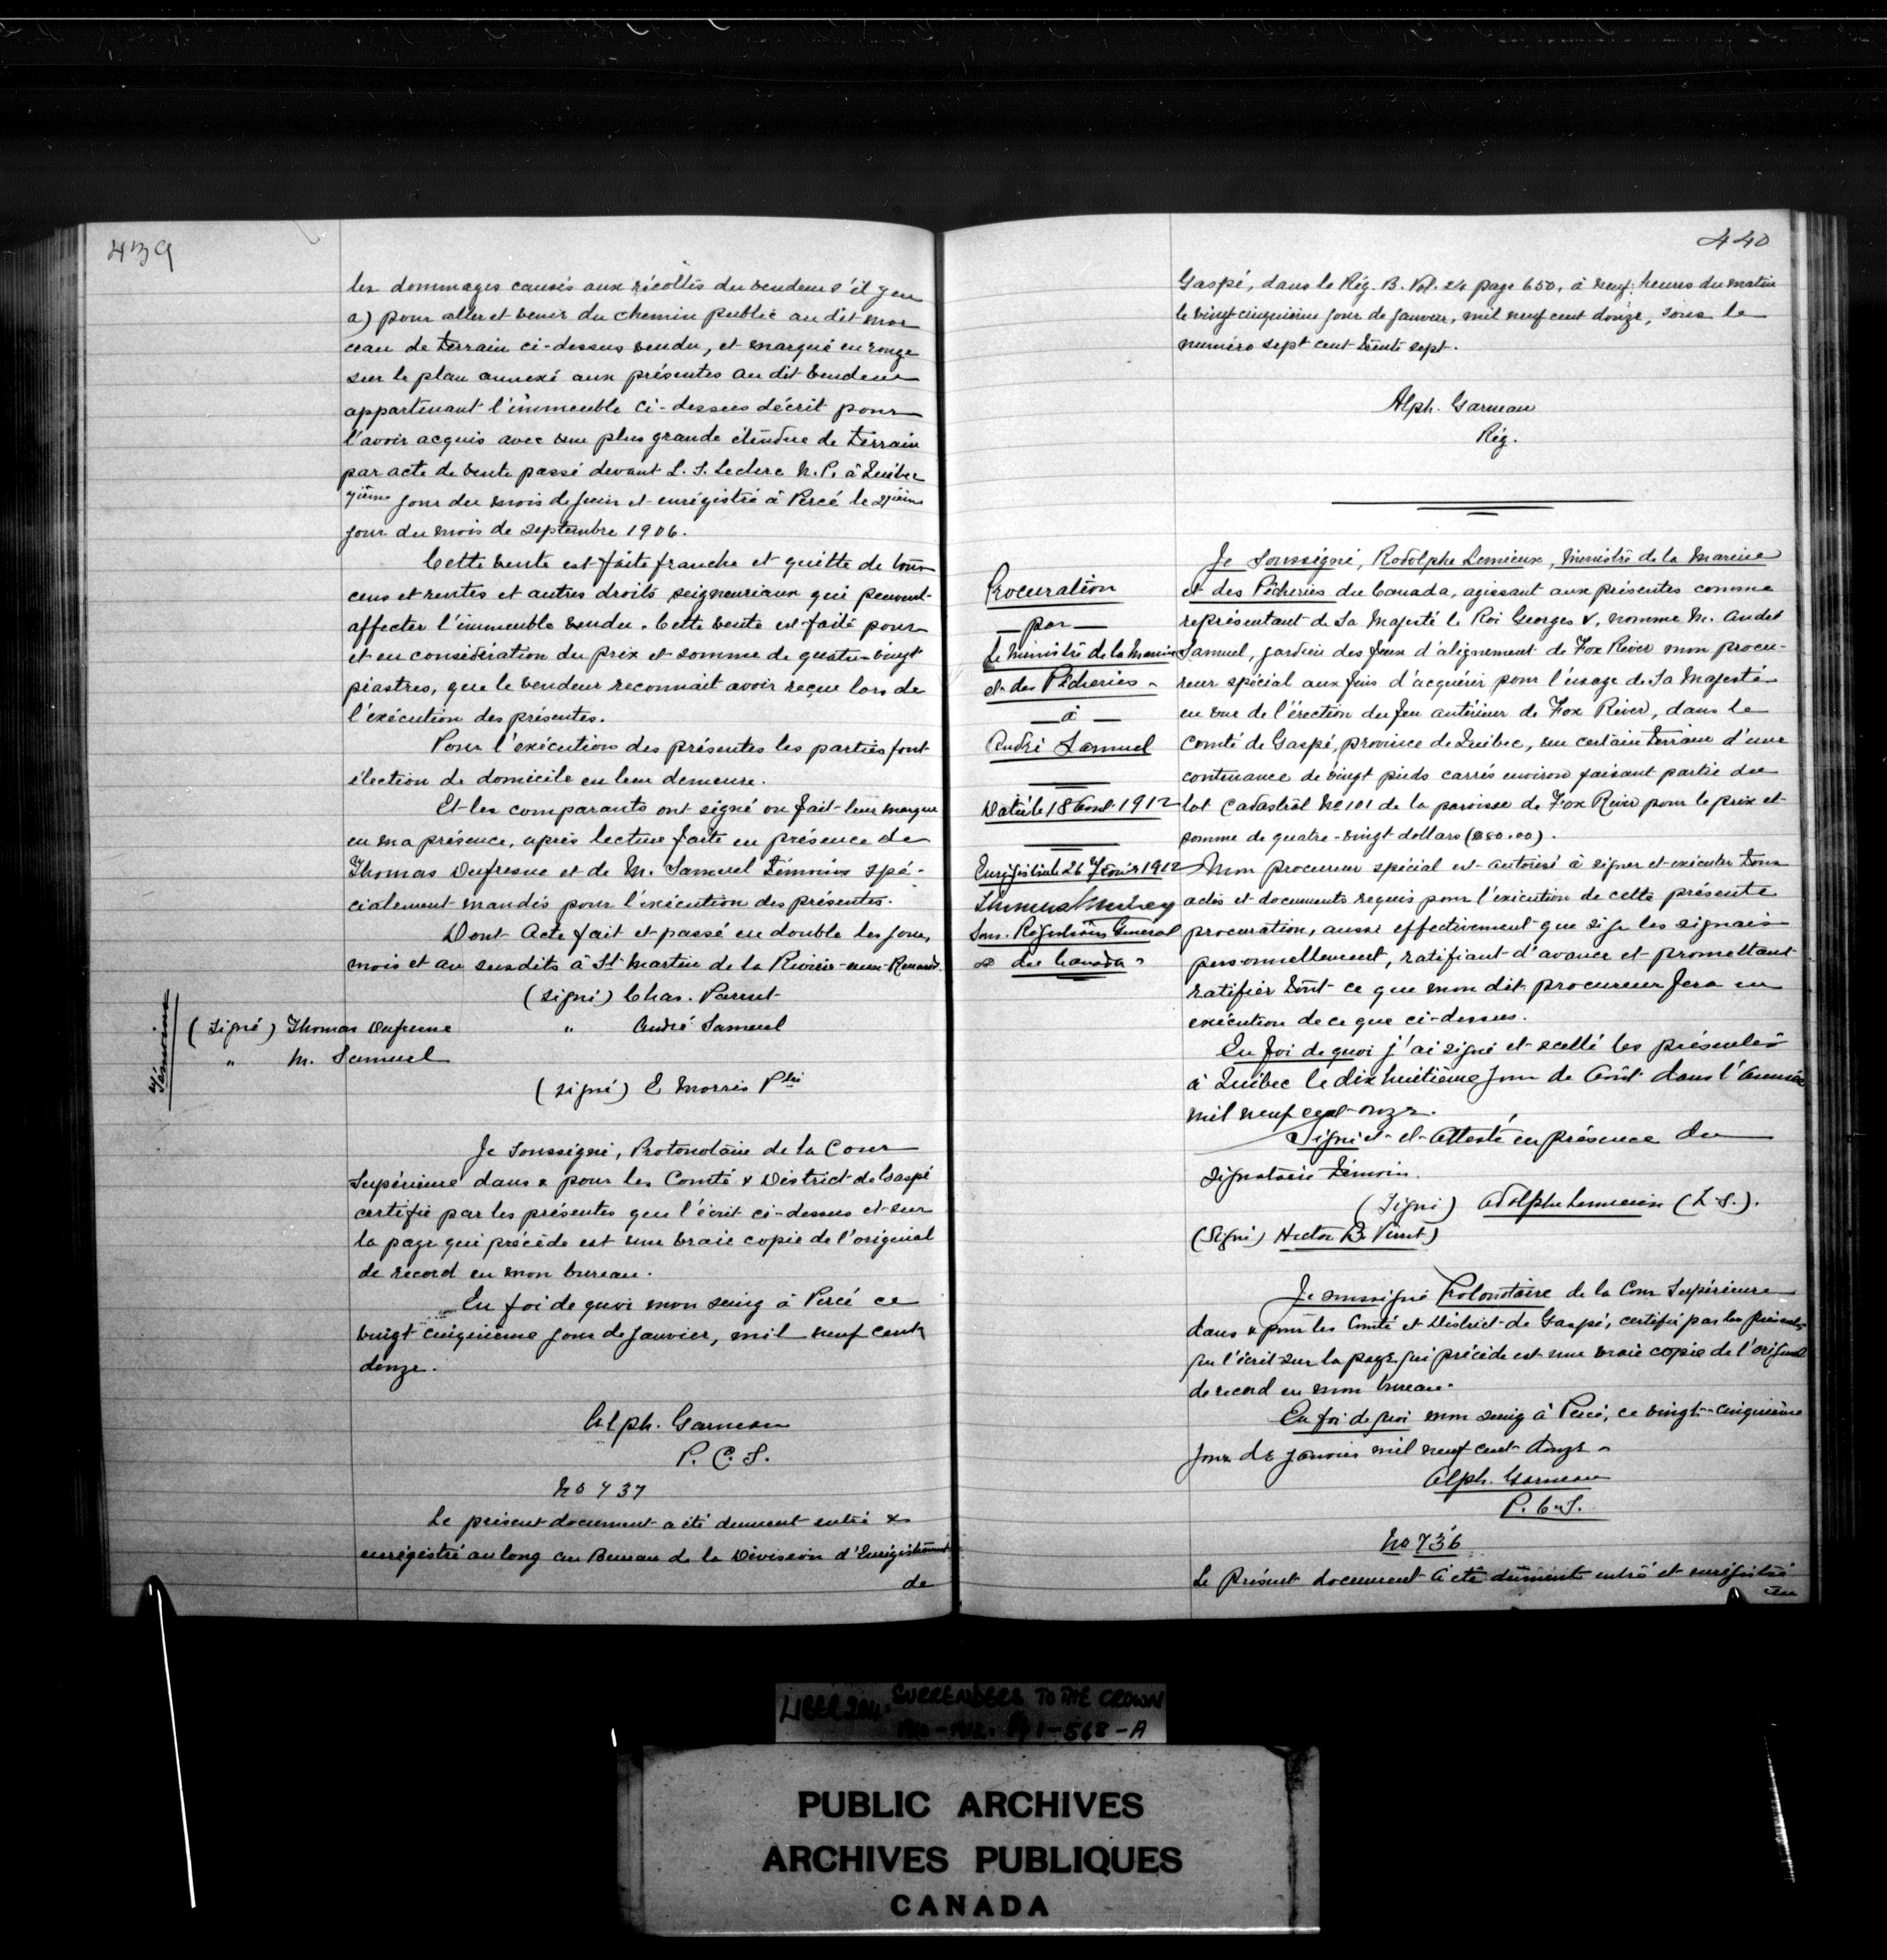 439
les dommages causés aux récoltes du vendeur s'il y en
a) pour aller et venir du chemin public au dit mor
ceau de terrain ci-dessus vendu, et marqué en rouge
sur le plan annexé aux présentes au dit vendeur
appartenant l'immeuble ci-dessus décrit pour
l'avoir acquis avec une plus grande étendue de terrain
par acte de vente passé devant L. S. Leclerc N. P. à Québec
7ième jour du mois de juin et enrégistré à Percé le
jour du mois de septembre 1906.
Cette vente est faite franche et quitte de tous
cens et rentes et autres droits seigneuriaux qui peuvent
affecter l'immeuble vendu. Cette vente est faite pour
et en considération du prix et somme de quatre-vingt
piastres, que le vendeur reconnait avoir reçue lors de
l'exécution des présentes.
Pour l'exécution des présentes les parties font
élection de domicile en leur demeure.
Et les comparants ont signé ou fait leur marque
en ma présence, après lecture faite en présence de
Thomas Dufresne et de M. Samuel témoins spé-
cialement mandés pour l'exécution des présentes.
Dont Acte fait et passé en double les jour,
mois et an susdits à St Martin de la Rivière-aux-Renards.
(signé) Chas. Parent
Témoins
(signé) Thomas Dufresne " André Samuel
" M. Samuel
(signé) E Morris Ptre
Je soussigné, Protonotaire de la Cour
Supérieure dans & pour les Comté & District de Gaspé
certifie par les présentes que l'écrit ci-dessus et sur
la page qui précède est une vraie copie de l'original
de record en mon bureau.
En foi de quoi mon seing à Percé ce
vingt cinquième jour de janvier, mil neuf cent
douze.
Alph. Garneau
P. C. S.
No 737
Le présent document a été dument entré &
enrégistré au long au Bureau de la Division d'Enrégistrement
de
440
Gaspé, dans le Rég. B. Vol. 24 page 650, à neuf heures du matin
le vingt cinquième jour de janvier, mil neuf cent douze, sous le
numéro sept cent trente sept.
Alph. Garneau
Rég.
Procuration
par
Le Ministre de la Marine
et des Pêcheries
à
André Samuel
Daté le 18 Aout 1912
Enrégistré le 26 Févr 1912
Sous-Régistraire Général
du Canada
Je soussigné, Rodolphe Lemieux, Ministre de la Marine
et des Pêcheries du Canada, agissant aux présentes comme
représentant de Sa Majesté le Roi Georges V, nomme M. André
Samuel, gardien des feux d'alignement de Fox River mon procu-
reur spécial aux fins d'acquérir pour l'usage de Sa Majesté
en vue de l'érection du feu antérieur de Fox River, dans le
comté de Gaspé, province de Québec, un certain terrain d'une
contenance de vingt pieds carrés environ faisant partie du
lot cadastral No 101 de la paroisse de Fox River pour le prix et
somme de quatre-vingt dollars ($80.00).
Mon procureur spécial est autorisé à signer et exécuter tous
actes et documents requis pour l'exécution de cette présente
procuration, aussi effectivement que si je les signais
personnellement, ratifiant d'avance et promettant
ratifier tout ce que mon dit procureur fera en
exécution de ce que ci-dessus.
En foi de quoi j'ai signé et scellé les présentes
à Québec le dix huitième jour de Août dans l'année
mil neuf cent onze.
Signé et attesté en présence du
signataire témoin.
(Signé) Rodolphe Lemieux (L. S.).
(Signé) Hector B. Verret)
Je soussigné Protonotaire de la Cour Supérieure
dans & pour les Comté et District de Gaspé, certifie par les présentes
que l'écrit sur la page qui précède est une vraie copie de l'original
de record en mon bureau.
En foi de quoi mon seing à Percé, ce vingt-cinquième
jour de janvier mil neuf cent douze
Alph. Garneau
P. C. S.
No 736
Le présent document a été dûment entré et enrégistré
au
LIBER 204. SURRENDERS TO THE CROWN
1910-1912. Pg 1-568-A
PUBLIC ARCHIVES
ARCHIVES PUBLIQUES
CANADA